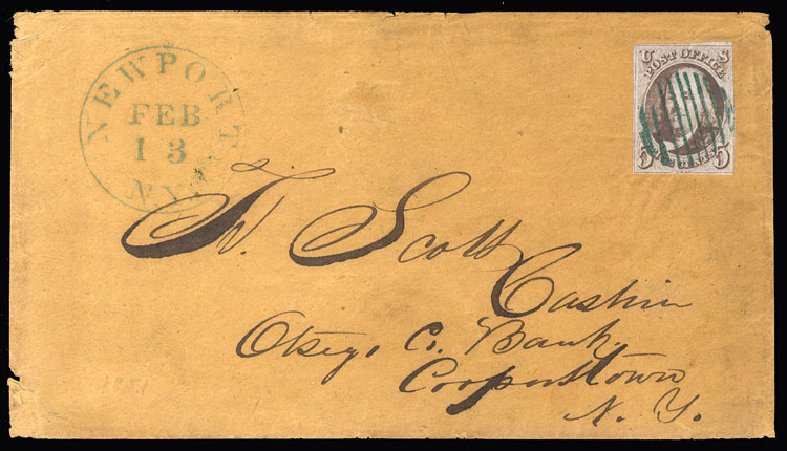 NEWPORT
FEB
13
N.Y.
U S
POST OFFICE
FIVE CENTS
5 5
W. Scott
Cashier
Otsego C. Bank
Cooperstown
N. Y.